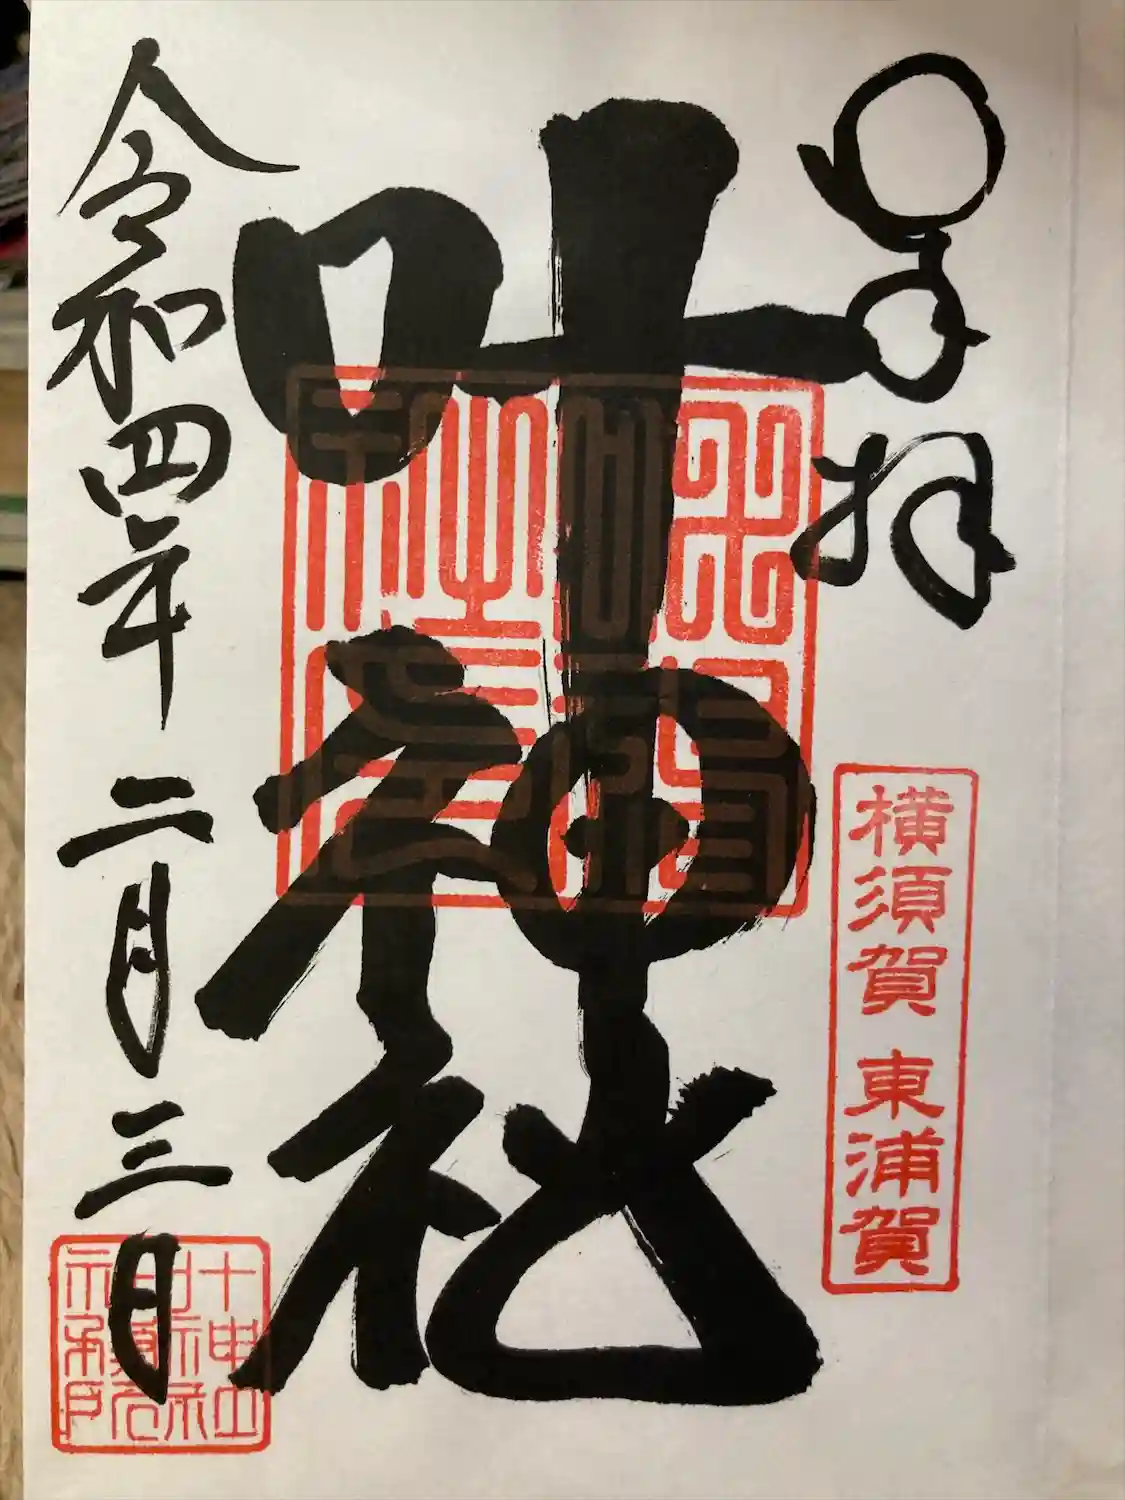 奉拝
横須賀 東浦賀
叶神社
令和四年 二月三日